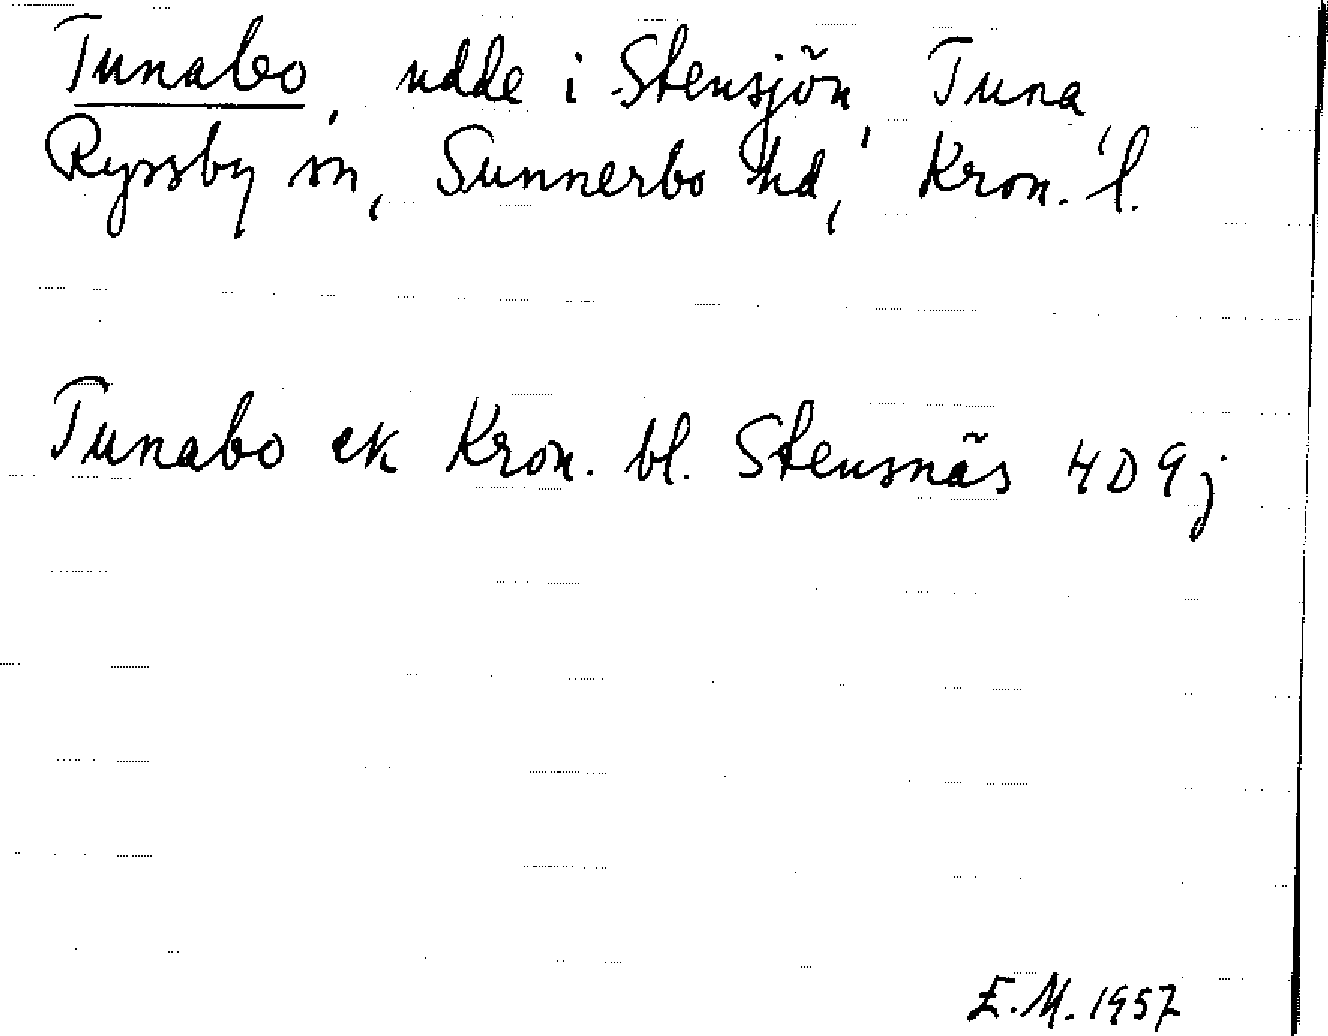 Tunabo, udde i Stensjön, Tuna,
Ryssby sn, Sunnerbo hd, Kron. l.
Tunabo ek Kron. bl. Stensnäs 4D 9j
E.M. 1957